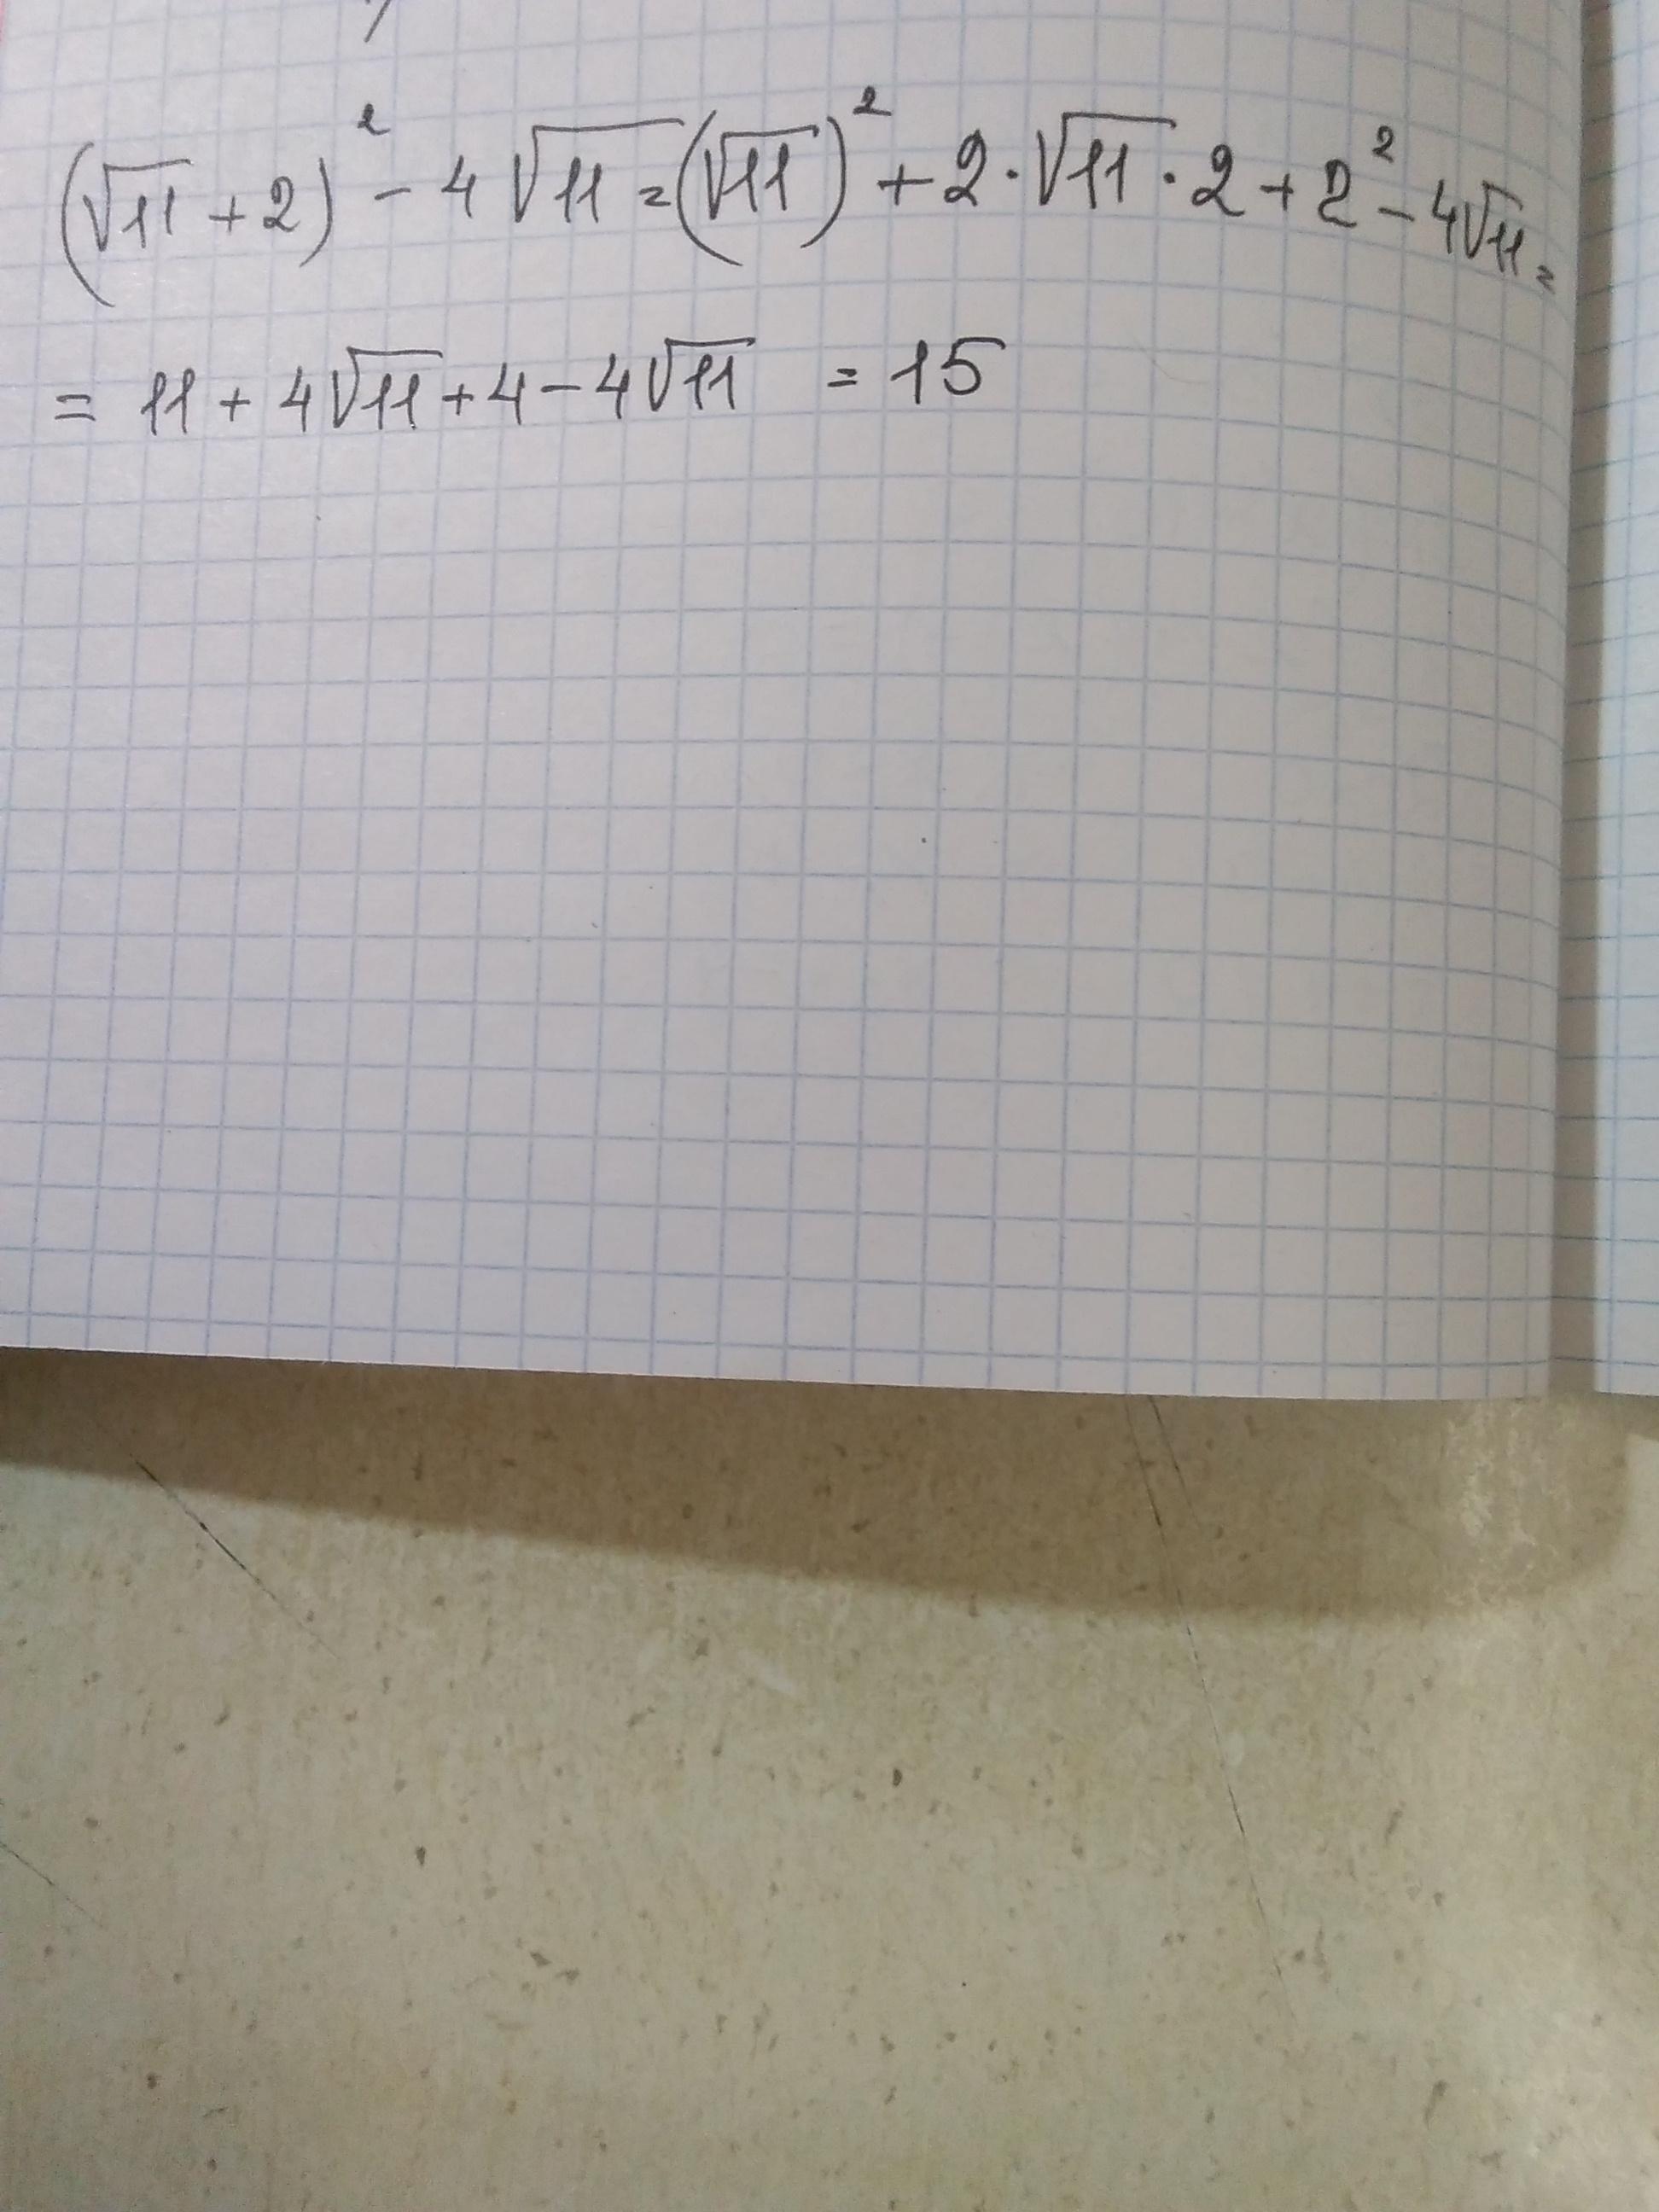 (√11 + 2)² - 4√11 = (√11)² + 2·√11·2 + 2² - 4√11 =
= 11 + 4√11 + 4 - 4√11 = 15